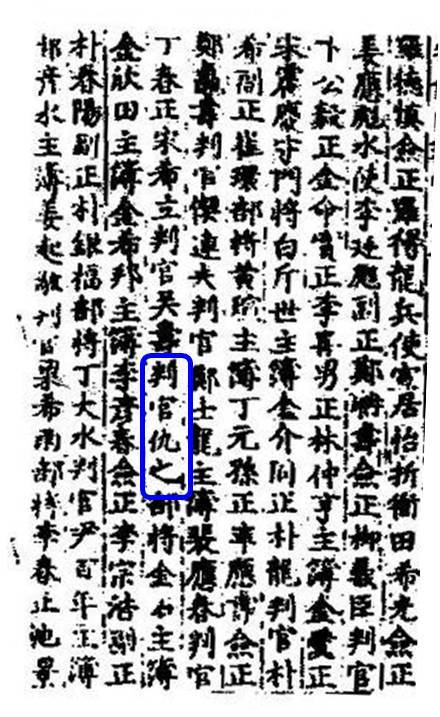 羅德慎僉正羅得龍兵使居怡折衝田希光僉正
姜應彪水使李廷彪副正鄭壽僉正柳義臣判官
卞公毅正金命正李男正林仲亨主簿金愛正
宋震應守門將白斤世主簿金介同正朴龍判官朴
希副正崔環部將黃主簿丁元孫正車應僉正
鄭壽判官連夫判官鄭士龍主簿裴應春判官
丁春正宋希立判官吳壽判官仇之部將金主簿
金欣田主簿金希邦主簿李彦春僉正李宗浩副正
朴春陽副正朴維福部將丁大水判官尹百年主簿
彦水主簿姜起判官梁希部將李春止池景